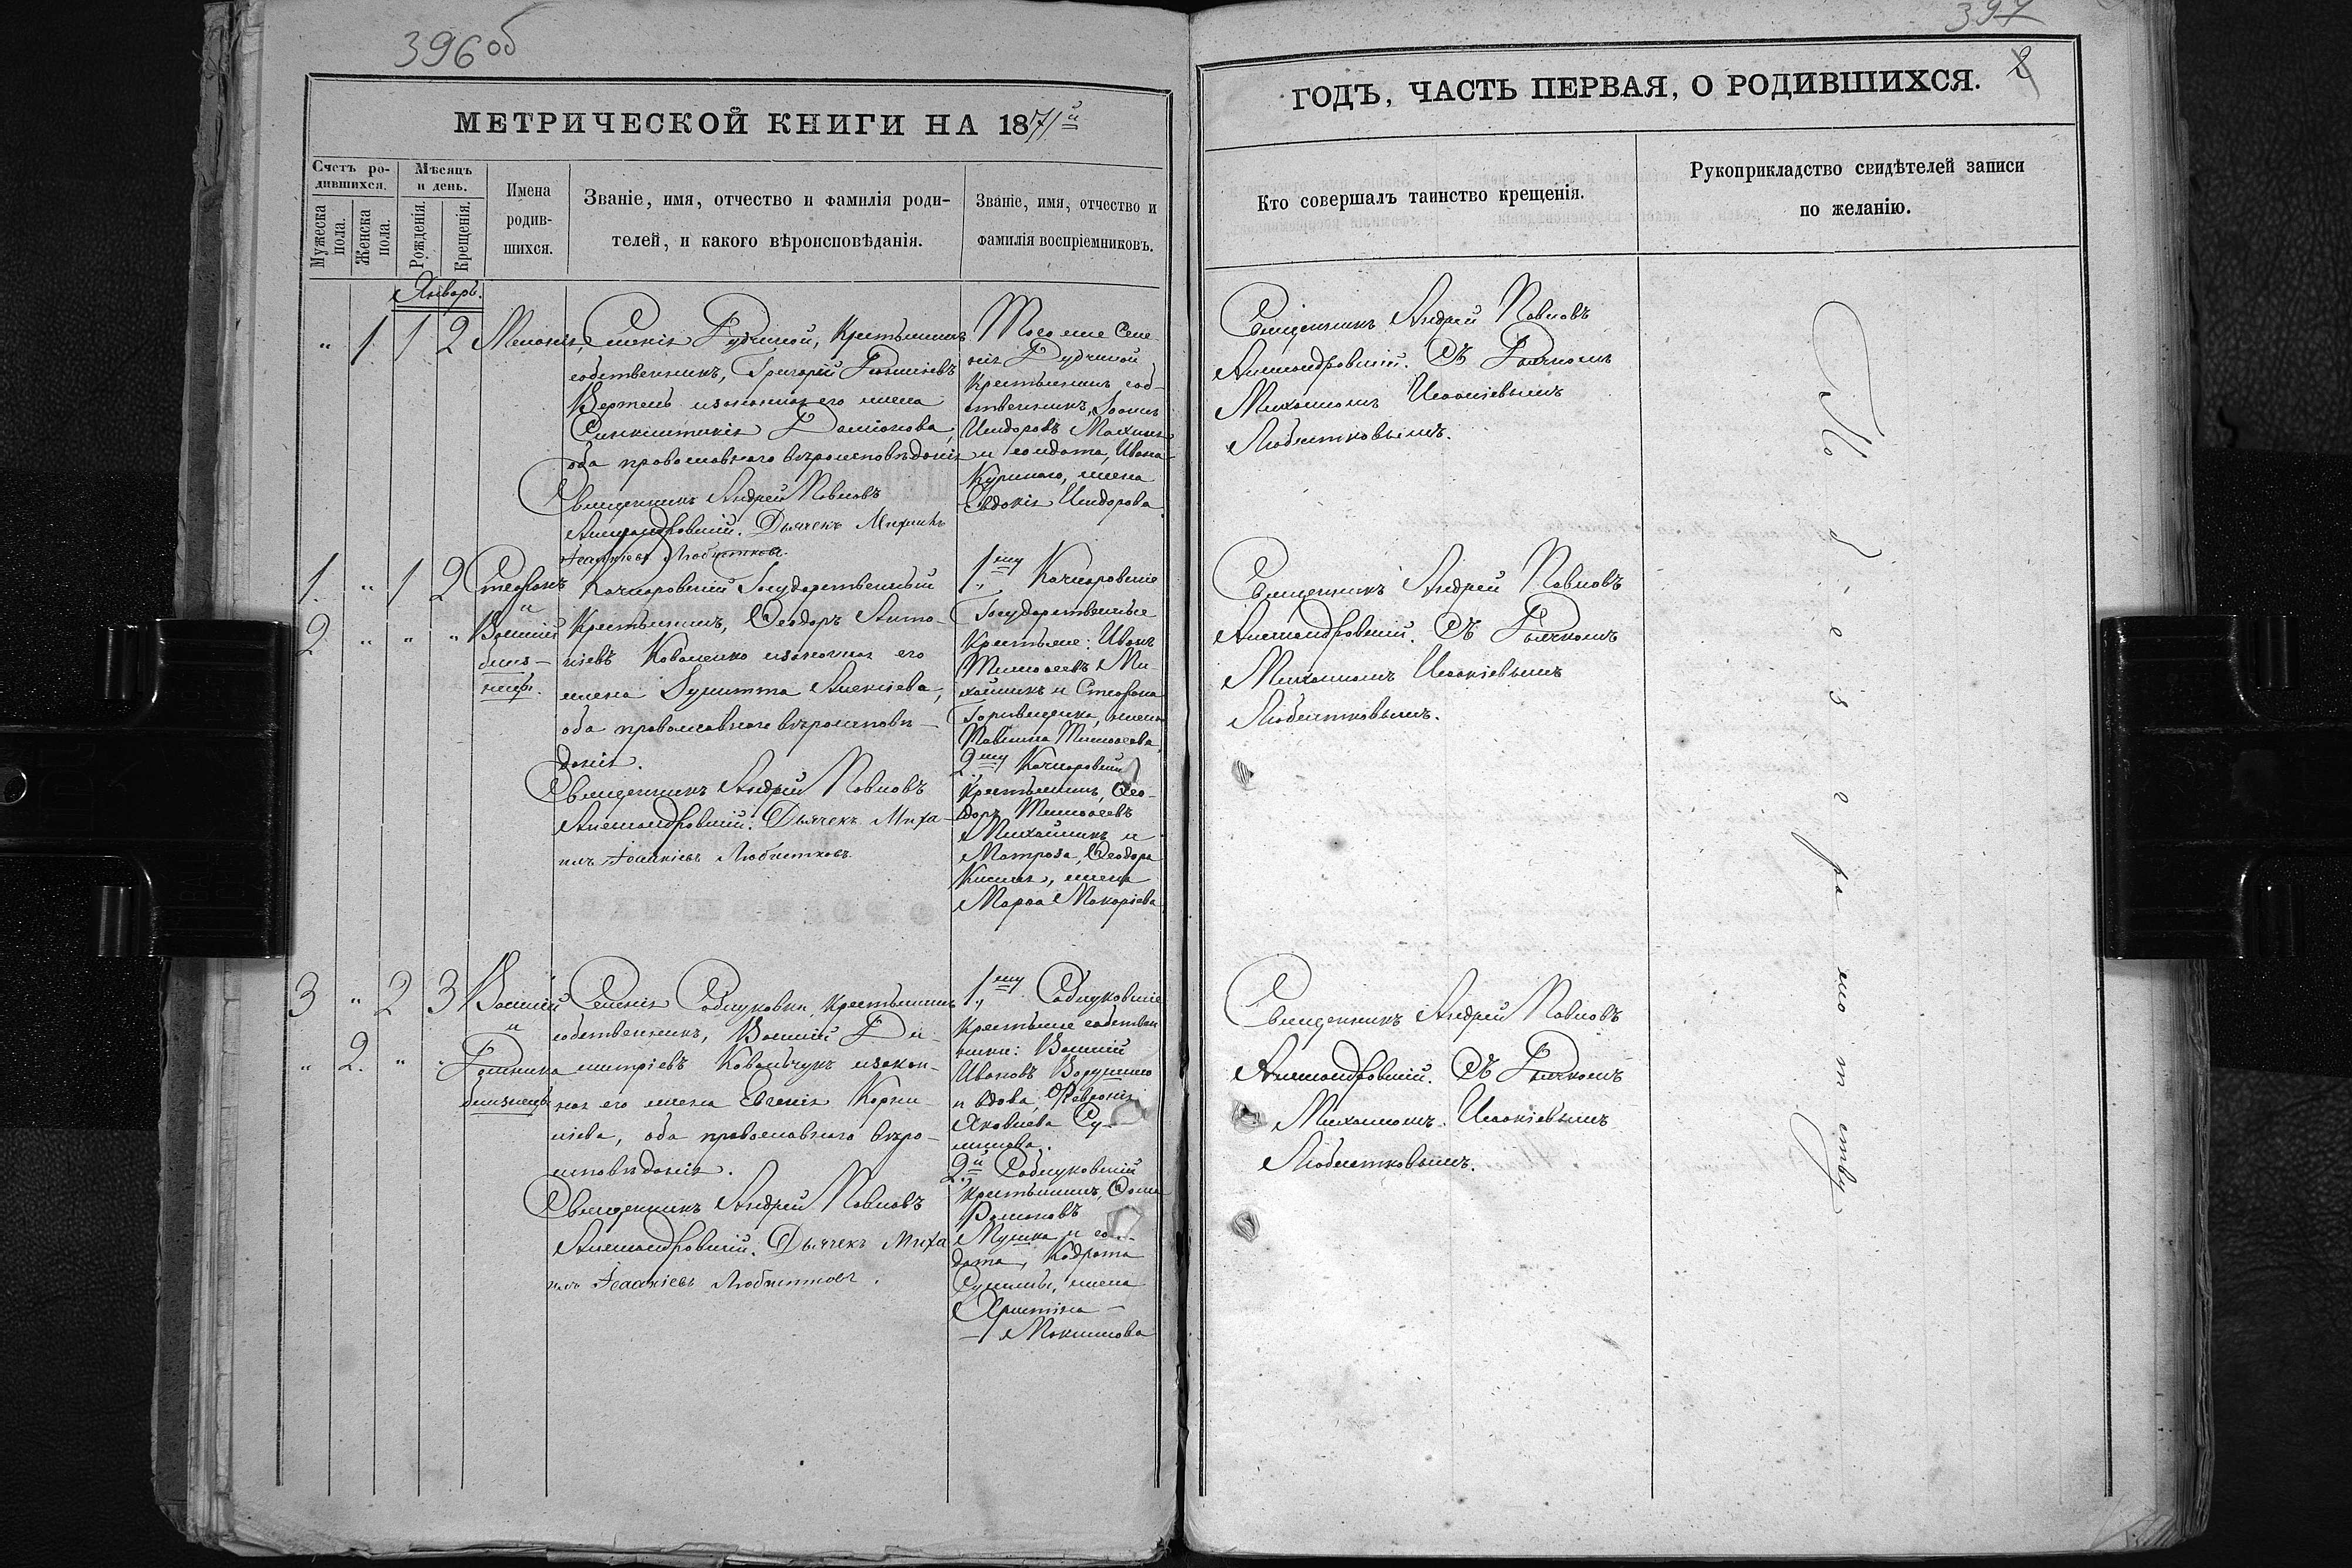 396 об
МЕТРИЧЕСКОЙ КНИГИ НА 1871й
Счетъ ро-
дившихся.
Мужеска пола.
Женска пола.
Мѣсяцъ
и день.
Рожденія.
Крещенія.
Имена
родив-
шихся.
Званіе, имя, отчество и фамилія роди-
телей, и какого вѣроисповѣданія.
Званіе, имя, отчество и
фамилія воспріемниковъ.
Январь.
" 1 1 2
Меланія
Селенія Рудчиной, Крестьянинъ
собственникъ, Григорій
законная его жена
Синклитикія Даміанова,
оба православнаго вѣроисповѣданія
Священникъ Андрей Павловъ
Александровскій. Дьячекъ Михаилъ
Іоанніевъ Любистковъ.
Того же Селе-
нія Рудчиной
Крестьянинъ соб-
ственникъ, Іоаннъ
Исидоровъ
и солдата, Ивана
жена
Евдокія Исидорова
1. " 1 2
2 " " "
Стефанъ
и
Василій
близ-
нецы.
Качкаровскій Государственный
Крестьянинъ, Ѳеодоръ Анто-
ніевъ Коваленко законная его
жена Улитта Алексіева,
оба православнаго вѣроисповѣ-
данія.
Священникъ Андрей Павловъ
Александровскій. Дьячекъ Миха-
илъ Іоанніевъ Любистковъ.
1му Качкаровскіе
Государственные
Крестьяне: Иванъ
Тимоѳеевъ Ми-
хайликъ и Стефана
жена
Павлина Тимоѳеева
2му Качкаровскій
Крестьянинъ, Ѳео-
доръ Тимоѳеевъ
Михайликъ и
Матроза, Ѳеодора
Кисиля, жена
Марѳа Макаріева
3 " 2 3
" 2. " "
Василій
и
Домника
близнецы
Селенія Саблуковки, Крестьянинъ
собственникъ, Василій Ди-
митріевъ Ковальчукъ закон-
ная его жена Евгенія Корни-
ліева, оба православнаго вѣро-
исповѣданія.
Священникъ Андрей Павловъ
Александровскій. Дьячекъ Миха-
илъ Іоанніевъ Любистковъ.
1му Саблуковскіе
Крестьяне собствен-
ники: Василій
Ивановъ
и вдова, Февронія
Яковлева
2й Саблуковскій
Крестьянинъ, Ѳома
Романовъ
Мушка и сол-
дата, Кодрата
жена
Христина
Максимова
397
2
ГОДЪ, ЧАСТЬ ПЕРВАЯ, О РОДИВШИХСЯ.
Кто совершалъ таинство крещенія.
Рукоприкладство свидѣтелей записи
по желанію.
Священникъ Андрей Павловъ
Александровскій. Съ Дьячкомъ
Михаиломъ Іоанніевымъ
Любистковымъ.
Священникъ Андрей Павловъ
Александровскій. Съ Дьячкомъ
Михаиломъ Іоанніевымъ
Любистковымъ.
Священникъ Андрей Павловъ
Александровскій. Съ Дьячкомъ
Михаиломъ Іоанніевымъ
Любистковымъ.
По безграмотству